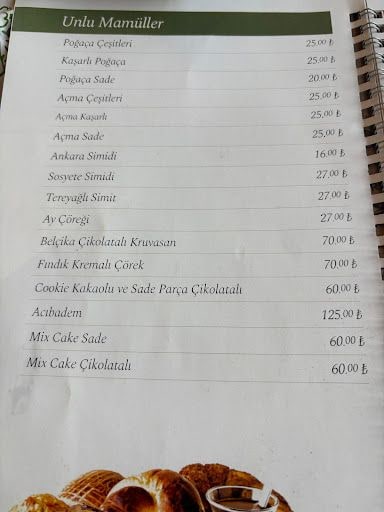 Unlu Mamüller
Poğaça Çeşitleri 25,00 ₺
Kaşarlı Poğaça 25,00 ₺
Poğaça Sade 20,00 ₺
Açma Çeşitleri 25,00 ₺
Açma Kaşarlı 25,00 ₺
Açma Sade 25,00 ₺
Ankara Simidi 16,00 ₺
Sosyete Simidi 27,00 ₺
Tereyağlı Simit 27,00 ₺
Ay Çöreği 27,00 ₺
Belçika Çikolatalı Kruvasan 70,00 ₺
Fındık Kremalı Çörek 70,00 ₺
Cookie Kakaolu ve Sade Parça Çikolatalı 60,00 ₺
Acıbadem 125,00 ₺
Mix Cake Sade 60,00 ₺
Mix Cake Çikolatalı 60,00 ₺